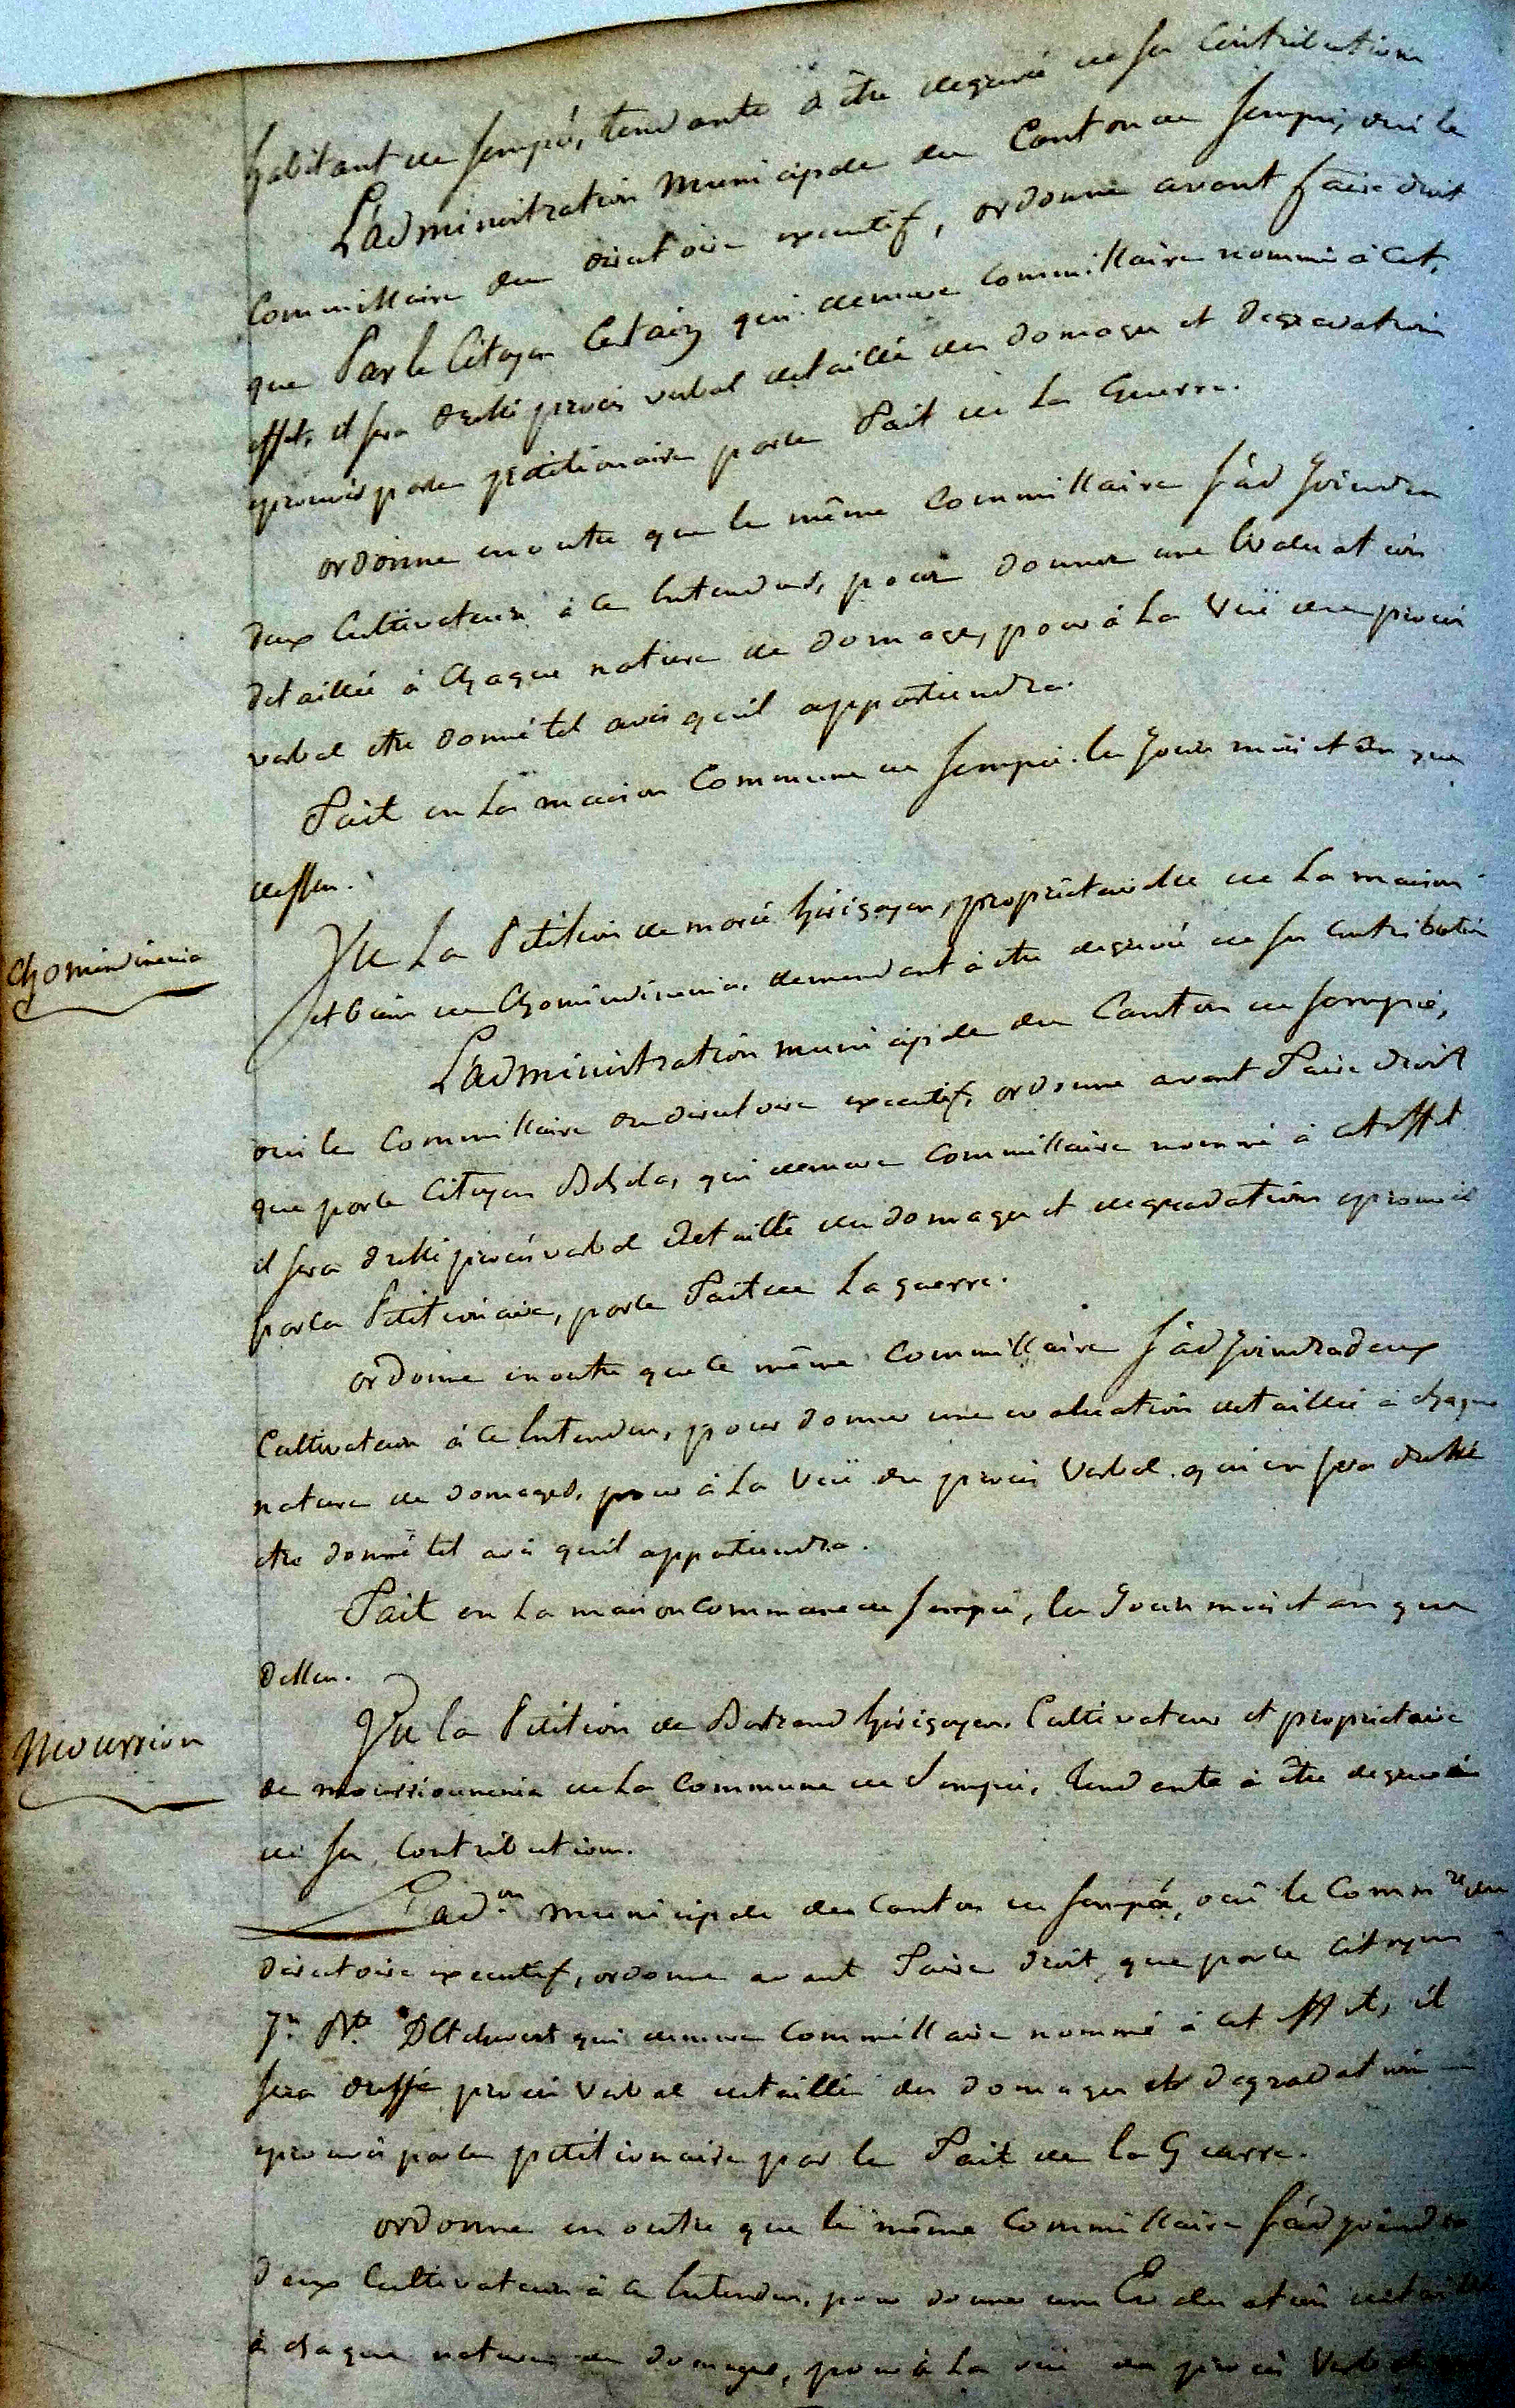 habitant de sempé, tendante à être degrevé de sa Contribution
L'administration municipale du Canton de sempé, oui le
Commissaire du directoire executif, ordonne avant faire droit
que Par le Citoyen qui demure commissaire nommé à Cet,
effet, il sera dressé procès verbal detaillé des domages et degradation
eprouvés par le petitionaire par le Fait de La Guerre.
ordonne en outre que le même Commissaire s'adjoindra
deux Cultivateurs à ce Entendus, pour donner une Evaluation
detaillée à Chaque nature de domage, pour à La Vuë du procès
verbal être donné tel avis qu'il appartiendra.
Fait en La maison Commune de sempé. les Jour mois et an que
dessus.
Chomindinenia
Vu La Petition de marie hirigoyen, proprietairesse de La maison
et biens de Chomindinenia, demendant à être degrevé de sa Contribution
L'administration municipale du Canton de sempé,
oui le Commissaire du directoire executif, ordonne avant Faire droit
que par le Citoyen qui demure Commissaire nommé à cet effet
il sera dressé procès verbal detaillé des domages et degradations eprouvés
par la Petitionaire, par le Fait de La guerre.
ordonne en outre que le même Commissaire s'adjoindra deux
Cultivateurs à ce Entendus, pour donner une evaluation detaillée à chaque
nature de domages, pour à La Vuë du procès Verbal qui en sera dressé
être donné tel avis qu'il appartiendra.
Fait en La maison commune de sempé, les Jour mois et an que
dessus.
Mourrion
Vu la Petition de Bertrand hirigoyen, Cultivateur et proprietaire
de mourriounenia de La Commune de Sempé, tendante à être degrevé
de sa Contribution.
L'ad.on municipale du Canton de sempé, oui le Comm.re du
directoire executif, ordonne avant Faire droit, que par le Citoyen
J.n B.te Detchevest qui demure Commissaire nommé à cet effet, il
sera dressé procès Verbal detaillé des domages et degradation
eprouvés par le petitionaire par le Fait de la Guerre.
ordonne en outre que le même Commissaire s'adjoindra
deux Cultivateurs à ce Entendus, pour donner une Evaluation detaillée
à chaque nature de domages, pour à La vuë du procès Verbal